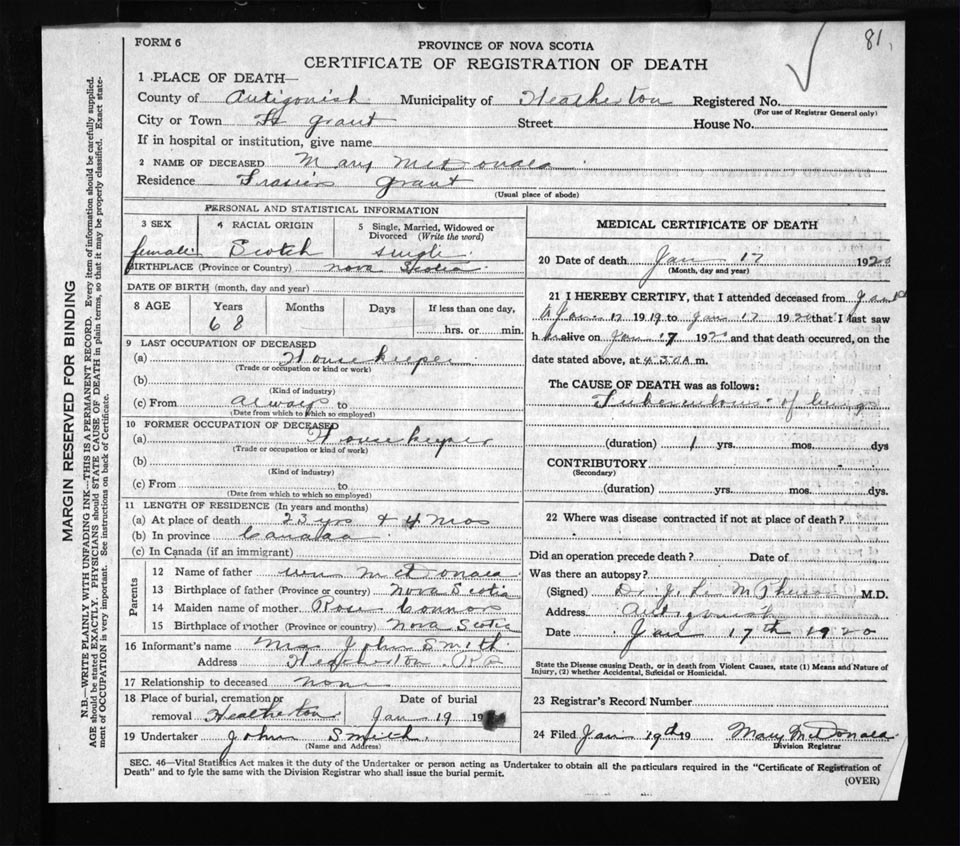 FORM 6
81.
PROVINCE OF NOVA SCOTIA
CERTIFICATE OF REGISTRATION OF DEATH
MARGIN RESERVED FOR BINDING
N.B.—WRITE PLAINLY WITH UNFADING INK—THIS IS A PERMANENT RECORD. Every item of information should be carefully supplied.
AGE should be stated EXACTLY. PHYSICIANS should STATE CAUSE OF DEATH in plain terms, so that it may be properly classified. Exact state-
ment of OCCUPATION is very important. See instructions on back of Certificate.
1 PLACE OF DEATH—
County of Antigonish Municipality of Heatherton Registered No.
(For use of Registrar General only)
City or Town Fr Grant Street House No.
If in hospital or institution, give name
2 NAME OF DECEASED Mary McDonald
Residence Frasers Grant
(Usual place of abode)
PERSONAL AND STATISTICAL INFORMATION
3 SEX 4 RACIAL ORIGIN 5 Single, Married, Widowed or
Divorced (Write the word)
female Scotch single
BIRTHPLACE (Province or Country) Nova Scotia
DATE OF BIRTH (month, day and year)
8 AGE Years Months Days If less than one day,
68 hrs. or min.
9 LAST OCCUPATION OF DECEASED
(a) Housekeeper
(Trade or occupation or kind or work)
(b)
(Kind of industry)
(c) From always to
(Date from which to which so employed)
10 FORMER OCCUPATION OF DECEASED
(a) Housekeeper
(Trade or occupation or kind of work)
(b)
(Kind of industry)
(c) From to
(Date from which to which so employed)
11 LENGTH OF RESIDENCE (In years and months)
(a) At place of death 23 yrs + 4 mos
(b) In province Canada
(c) In Canada (if an immigrant)
Parents
12 Name of father Wm McDonald
13 Birthplace of father (Province or country) Nova Scotia
14 Maiden name of mother Rose Connors
15 Birthplace of mother (Province or country) Nova Scotia
16 Informant's name Mrs John Smith
Address Heatherton
17 Relationship to deceased none
18 Place of burial, cremation or Date of burial
removal Heatherton Jan 19 19
19 Undertaker John Smith
(Name and Address)
MEDICAL CERTIFICATE OF DEATH
20 Date of death Jan 17 1920
(Month, day and year)
21 I HEREBY CERTIFY, that I attended deceased from
1919 to Jan 17 1920 that I last saw
h alive on Jan 17 1920 and that death occurred, on the
date stated above, at 4.30 A m.
The CAUSE OF DEATH was as follows:
Tuberculous of lungs
(duration) 1 yrs. mos. dys
CONTRIBUTORY
(Secondary)
(duration) yrs. mos. dys.
22 Where was disease contracted if not at place of death?
Did an operation precede death? Date of
Was there an autopsy?
(Signed) Dr. J. McPherson M.D.
Address. Antigonish
Date Jan 17th 1920
State the Disease causing Death, or in death from Violent Causes, state (1) Means and Nature of
Injury, (2) whether Accidental, Suicidal or Homicidal.
23 Registrar's Record Number
24 Filed Jan 19th 19 Mary McDonald
Division Registrar
SEC. 46—Vital Statistics Act makes it the duty of the Undertaker or person acting as Undertaker to obtain all the particulars required in the "Certificate of Registration of
Death" and to fyle the same with the Division Registrar who shall issue the burial permit.
(OVER)